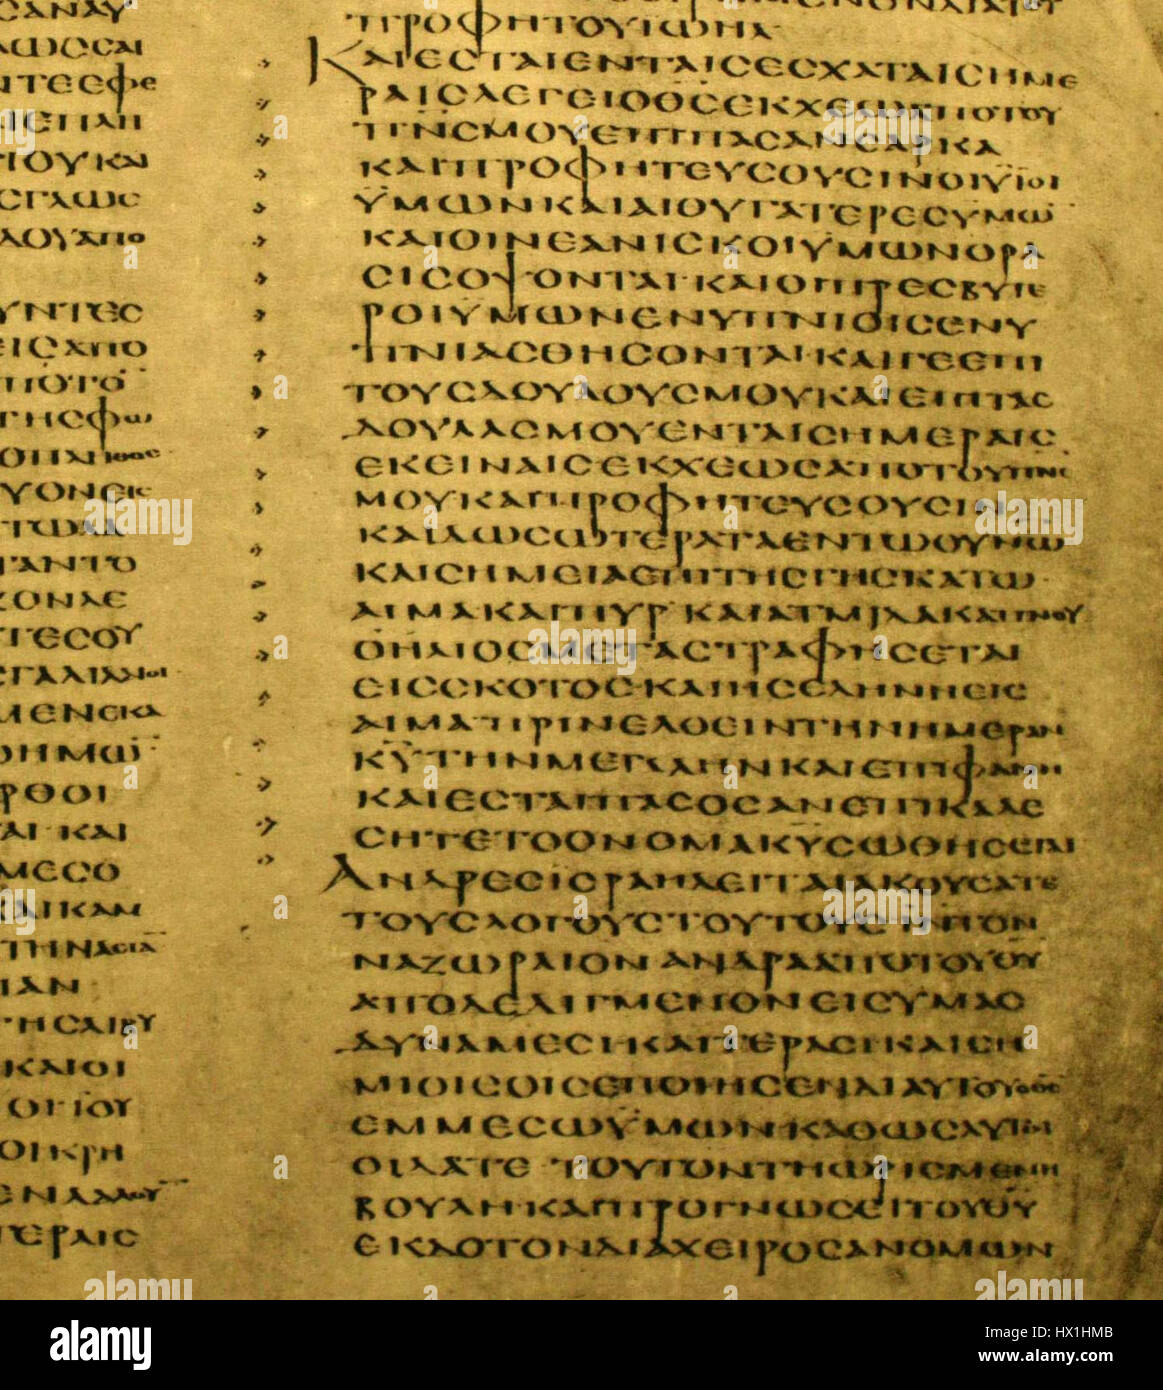 CΑΝΑΥ
ΛΩCCΑΙ
ΝΤΕCΕΦΕ
ΙΟΥΚΑΙ
CΓΛΩC
ΛΟΥΑΠΟ
ΥΝΤΕC
ΕΙCΑΠΟ
ΤΗCΦΩ
ΥΟΝΕΚ
ΓΑΝΤΟ
ΖΟΝΔΕ
ΓΕCΟΥ
ΓΑΛΙΛΑΙΟΙ
ΜΕΝCΚΑ
ΗΜΩ̅
ΡΘΟΙ
ΤΑΙ·ΚΑΙ
ΜΕCΟ
ΚΑΙΚΑΠ
ΤΗΝΑCΙΑ̅
ΙΑΝ
ΤΗCΛΙΒΥ
ΚΑΙΟΙ
ΟΙΚΡΗ
ΤΕΡΑΙC
ΠΡΟΦΗΤΟΥΙΩΗΛ
ΚΑΙΕCΤΑΙΕΝΤΑΙCΕCΧΑΤΑΙCΗΜΕ
ΡΑΙCΛΕΓΕΙΟΘ̅C̅ΕΚΧΕΩΑΠΟΤΟΥ
Π̅Ν̅C̅ΜΟΥΕΠΙΠΑCΑΝCΑΡΚΑ
ΚΑΙΠΡΟΦΗΤΕΥCΟΥCΙΝΟΙΥΙΟΙ
ΫΜΩΝΚΑΙΑΙΘΥΓΑΤΕΡΕCΥΜΩ̅
ΚΑΙΟΙΝΕΑΝΙCΚΟΙΥΜΩΝΟΡΑ
CΙCΟΨΟΝΤΑΙ·ΚΑΙΟΙΠΡΕCΒΥΤΕ
ΡΟΙΥΜΩΝΕΝΥΠΝΙΟΙCΕΝΥ
ΠΝΙΑCΘΗCΟΝΤΑΙ·ΚΑΙΓΕΕΠΙ
ΤΟΥCΔΟΥΛΟΥCΜΟΥΚΑΙΕΠΙΤΑC
ΔΟΥΛΑCΜΟΥΕΝΤΑΙCΗΜΕΡΑΙC
ΕΚΕΙΝΑΙCΕΚΧΕΩΑΠΟΤΟΥΠ̅Ν̅C̅
ΜΟΥ·ΚΑΙΠΡΟΦΗΤΕΥCΟΥCΙΝ
ΚΑΙΔΩCΩΤΕΡΑΤΑΕΝΤΩΟΥΝΩ
ΚΑΙCΗΜΕΙΑΕΠΙΤΗCΓΗCΚΑΤΩ·
ΑΙΜΑΚΑΙΠΥΡ·ΚΑΙΑΤΜΙΔΑΚΑΠΝΟΥ
ΟΗΛΙΟCΜΕΤΑCΤΡΑΦΗCΕΤΑΙ
ΕΙCCΚΟΤΟC·ΚΑΙΗCΕΛΗΝΗΕΙC
ΑΙΜΑ·ΠΡΙΝΕΛΘΕΙΝΤΗΝΗΜΕΡΑΝ
Κ̅Υ̅ΤΗΝΜΕΓΑΛΗΝΚΑΙΕΠΙΦΑΝΗ
ΚΑΙΕCΤΑΙΠΑCΟCΑΝΕΠΙΚΑΛΕ
CΗΤΕΤΟΟΝΟΜΑΚ̅Υ̅CΩΘΗCΕΤΑΙ
ΑΝΔΡΕCΙCΡΑΗΛΕΙΤΑΙΑΚΟΥCΑΤΕ
ΤΟΥCΛΟΓΟΥCΤΟΥΤΟΥC·Ι̅Ν̅ΤΟΝ
ΝΑΖΩΡΑΙΟΝΑΝΔΡΑΑΠΟΤΟΥΘ̅Υ̅
ΑΠΟΔΕΔΙΓΜΕΝΟΝΕΙCΥΜΑC
ΔΥΝΑΜΕCΙΚΑΙΤΕΡΑCΙΚΑΙCΗ
ΜΙΟΙCΟΙCΕΠΟΙΗCΕΝΔΙΑΥΤΟΥΟΘ̅C̅
ΕΜΜΕCΩΫΜΩΝ·ΚΑΘΩCΑΥΤΟΙ
ΟΙΔΑΤΕ·ΤΟΥΤΟΝΤΗΩΡΙCΜΕΝΗ
ΒΟΥΛΗ·ΚΑΙΠΡΟΓΝΩCΕΙΤΟΥΘ̅Υ̅
ΕΚΔΟΤΟΝΔΙΑΧΕΙΡΟCΑΝΟΜΩΝ
alamy
Image ID: HX1HMB
www.alamy.com